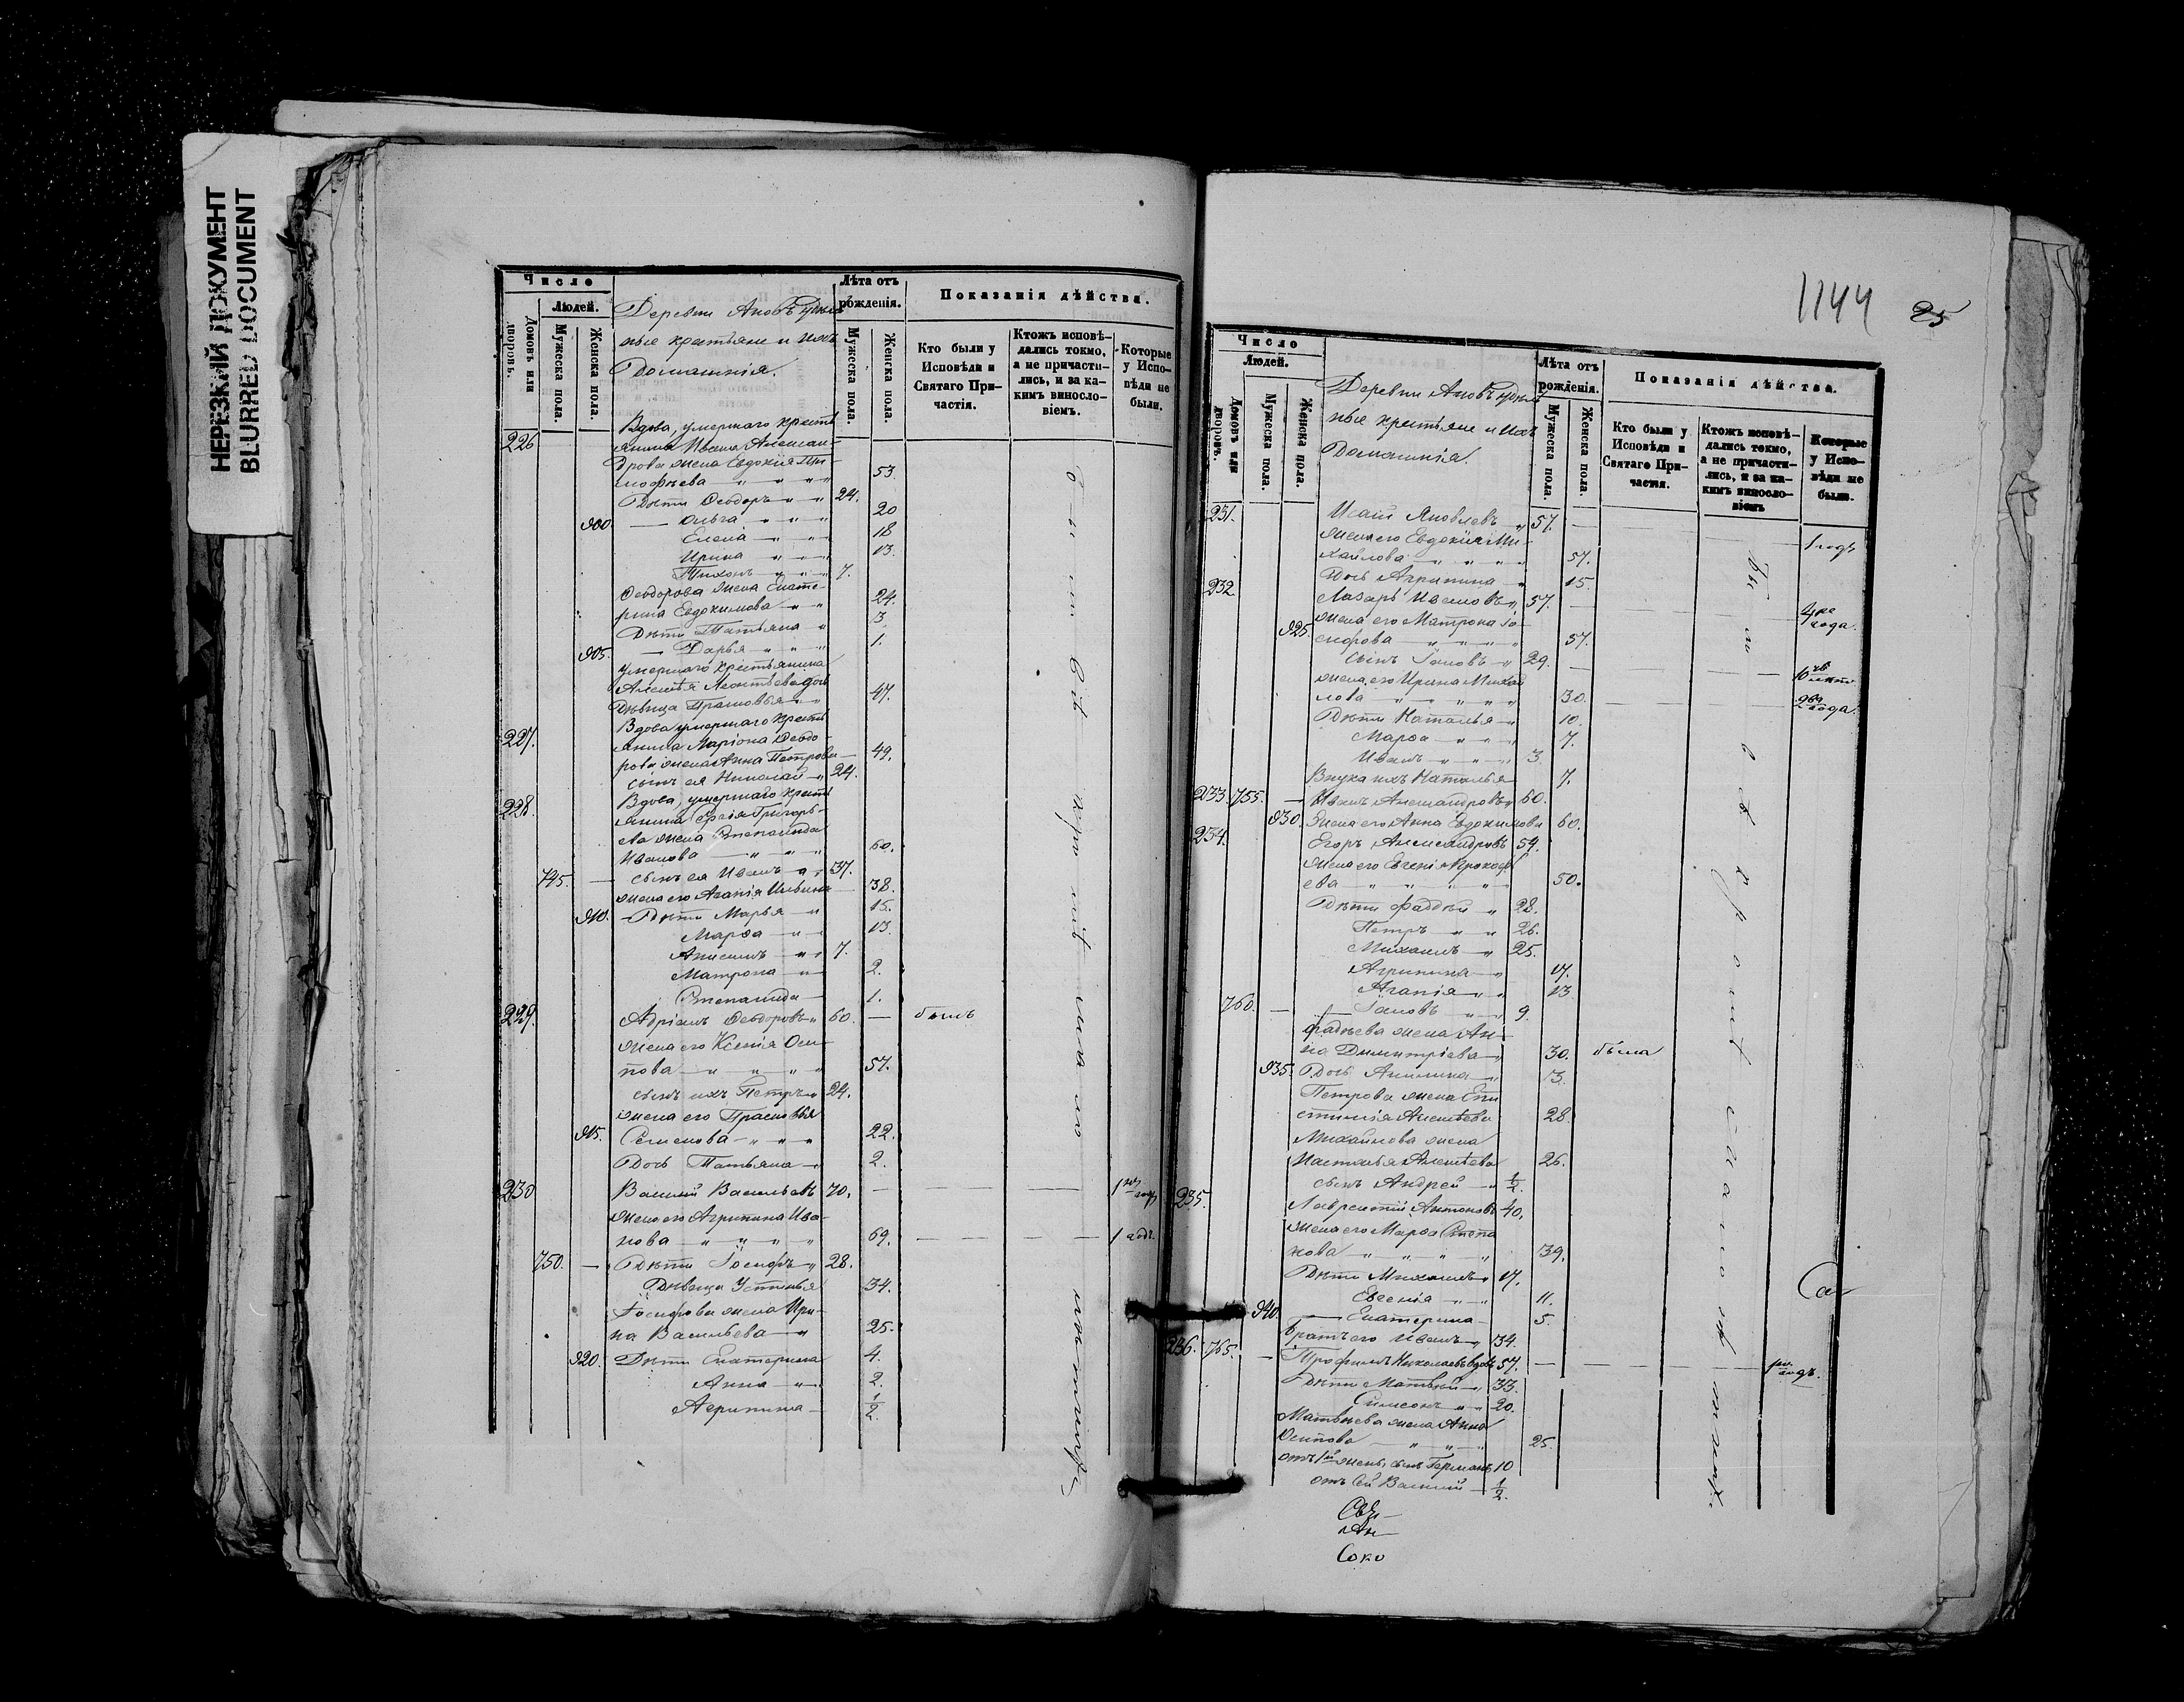 НЕРЕЗКИЙ ДОКУМЕНТ
BLURRED DOCUMENT
Число
Людей.
Домовъ или дворовъ.
Мужеска пола.
Женска пола.
Деревни
ные крестьяне и ихъ
Домашнія.
Лѣта отъ рожденія.
Мужеска пола.
Женска пола.
Показанія дѣйства.
Кто были у Исповѣди и Святаго Причастія.
Ктожъ исповѣдались токмо, а не причастились, и за какимъ винословіемъ.
Которые у Исповѣди не были.
226 Вдова, умершаго кресть
янина Ивана Алексан-
дрова жена Евдокія Ти-
мофѣева 53.
Дѣти Ѳеодоръ 24.
900. Ольга 20
Елена 18
Ирина 13.
Тихонъ 7.
Ѳеодорова жена Екате-
рина Евдокимова 24.
Дѣти Татьяна 3
905. Дарья 1.
умершаго крестьянина
Алексѣя Леонтьева дочь
Дѣвица Прасковья 47.
227. Вдова умершаго кресть
янина Ѳеодо-
рова жена Анна Петрова 49.
сынъ ея Николай 24.
228. Вдова, умершаго кресть
янина Григорь-
ева жена Степанида
Иванова 60.
745. сынъ ея Иванъ 37.
жена его Агапія Ильина 38.
910. Дѣти Марья 15.
Марѳа 13.
Анисимъ 7.
Матрона 2.
Степанида 1.
229. Адріанъ Ѳеодоровъ 60. былъ
жена его Ксенія Оси-
пова 57.
сынъ ихъ Петръ 24.
жена его Прасковья
915. Семенова 22.
Дочь Татьяна 2.
230 Василій Васильевъ 70. 1 годъ
жена его Агрипина Ива-
нова 69. 1 годъ.
750. Дѣти Іосифъ 28.
Дѣвица Устинья 34.
Іосифова жена Ири-
на Васильева 25.
920. Дѣти Екатерина 4.
Анна 2.
Агрипина 1/2.
1144 25
Число
Людей.
Домовъ или дворовъ.
Мужеска пола.
Женска пола.
Деревни
ные крестьяне и ихъ
Домашнія.
Лѣта отъ рожденія.
Мужеска пола.
Женска пола.
Показанія дѣйства.
Кто были у Исповѣди и Святаго Причастія.
Ктожъ исповѣдались токмо, а не причастились, и за какимъ винословіемъ
Которые у Исповѣди не были.
231. Исаій Яковлевъ 57. 1 годъ
жена его Евдокія Ми-
хайлова 57.
Дочь Агрипина 15.
232 Лазарь Ивановъ 57. года.
жена его Матрона Іо-
925. сифова 57.
сынъ Іаковъ 29.
жена его Ирина Михай
лова 30. года.
Дѣти Наталья 10.
Марѳа 7.
Иванъ 3.
Внука ихъ Наталья 7.
233. 755. Иванъ Александровъ 60.
930. Жена его Анна Евдокимова 60.
234. Егоръ Александровъ 54.
жена его Евгенія Прокофь
ева 50.
Дѣти Фаддѣй 28.
Петръ 26.
Михаилъ 25.
Агрипина 17.
Агапія 13
760. Іаковъ 9.
Фадѣева жена Ан-
на Димитріева 30. была
935. Дочь Акилина 3.
Петрова жена Епи
стимія Алексѣева 28.
Михайлова жена
Наталья Алексѣева 26.
сынъ Андрей 1/2.
235. Лаврентій Антоновъ 40.
жена его Марѳа Степа
нова 39.
Дѣти Михаилъ 17.
Евгенія 11.
940. Екатерина 5.
братъ его Иванъ 34.
236. 765. Трофимъ Николаевъ вдовъ 57. годъ.
Дѣти Матвѣй 33.
Симеонъ 20.
Матвѣева жена Анна
Осипова 25.
отъ 1й жены сынъ Германъ 10
отъ сей Василій 1/2.
Свя-
Ан-
Соко